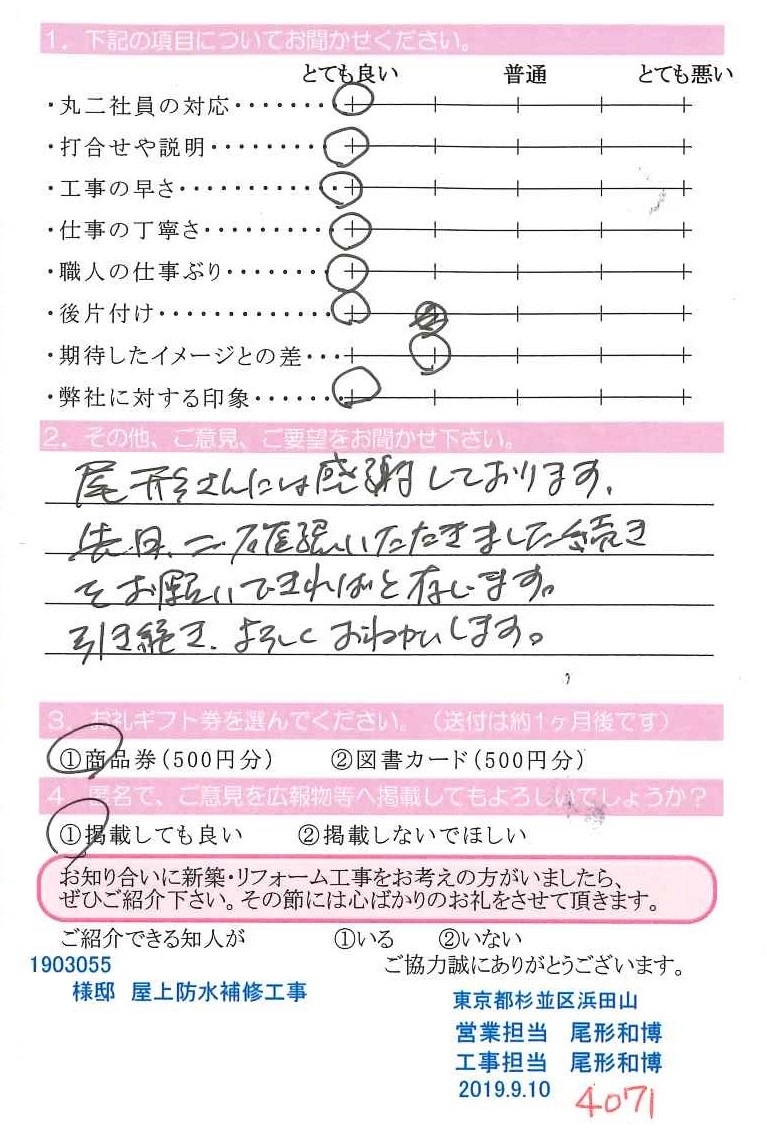 1. 下記の項目についてお聞かせください。
とても良い 普通 とても悪い
・丸二社員の対応・・・・・・・
・打合せや説明・・・・・・・・
・工事の早さ・・・・・・・・・・
・仕事の丁寧さ・・・・・・・・・
・職人の仕事ぶり・・・・・・・
・後片付け・・・・・・・・・・・・・
・期待したイメージとの差・・・
・弊社に対する印象・・・・・・
2. その他、ご意見、ご要望をお聞かせ下さい。
尾形さんには感謝しております。
先日、ご確認いただきました続き
をお願いできればと存じます。
引き続き、よろしくおねがいします。
3. お礼ギフト券を選んでください。(送付は約1ヶ月後です)
①商品券(500円分) ②図書カード(500円分)
4. 匿名で、ご意見を広報物等へ掲載してもよろしいでしょうか?
①掲載しても良い ②掲載しないでほしい
お知り合いに新築・リフォーム工事をお考えの方がいましたら、
ぜひご紹介下さい。その節には心ばかりのお礼をさせて頂きます。
ご紹介できる知人が ①いる ②いない
1903055 ご協力誠にありがとうございます。
様邸 屋上防水補修工事
東京都杉並区浜田山
営業担当 尾形和博
工事担当 尾形和博
2019.9.10 4071